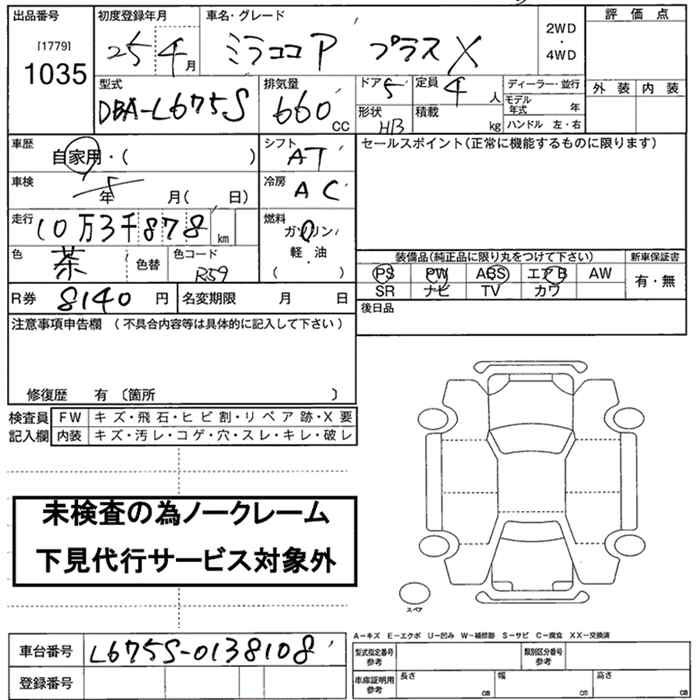 出品番号 初度登録年月 車名・グレード 評価点
[1779] 1035 25 4月 ミラココア プラスX 2WD・4WD
外装 内装
型式 排気量 ドア 5 定員 4人 ディーラー・並行
DBA-L675S 660 CC モデル年式 年
形状 HB 積載 kg ハンドル 左・右
車歴 自家用・( ) シフト AT セールスポイント(正常に機能するものに限ります)
車検 年 月( 日) 冷房 AC
走行 10万3千878km 燃料 ガソリン・軽油・( )
色 茶 色替 色コード R59
装備品(純正品に限り丸をつけて下さい) 新車保証書
PS PW ABS エアB AW 有・無
SR ナビ TV カワ
R券 8140円 名変期限 月 日
後日品
注意事項申告欄 (不具合内容等は具体的に記入して下さい)
修復歴 有 〔箇所 〕
検査員記入欄 FW キズ・飛石・ヒビ割・リペア跡・X要
内装 キズ・汚レ・コゲ・穴・スレ・キレ・破レ
未検査の為ノークレーム
下見代行サービス対象外
スペア
A−キズ E−エクボ U−凹み W−補修跡 S−サビ C−腐食 XX−交換済
車台番号 L675S-0138108 型式指定番号 参考 類別区分番号 参考
登録番号 車庫証明用 参考 長さ cm 幅 cm 高さ cm